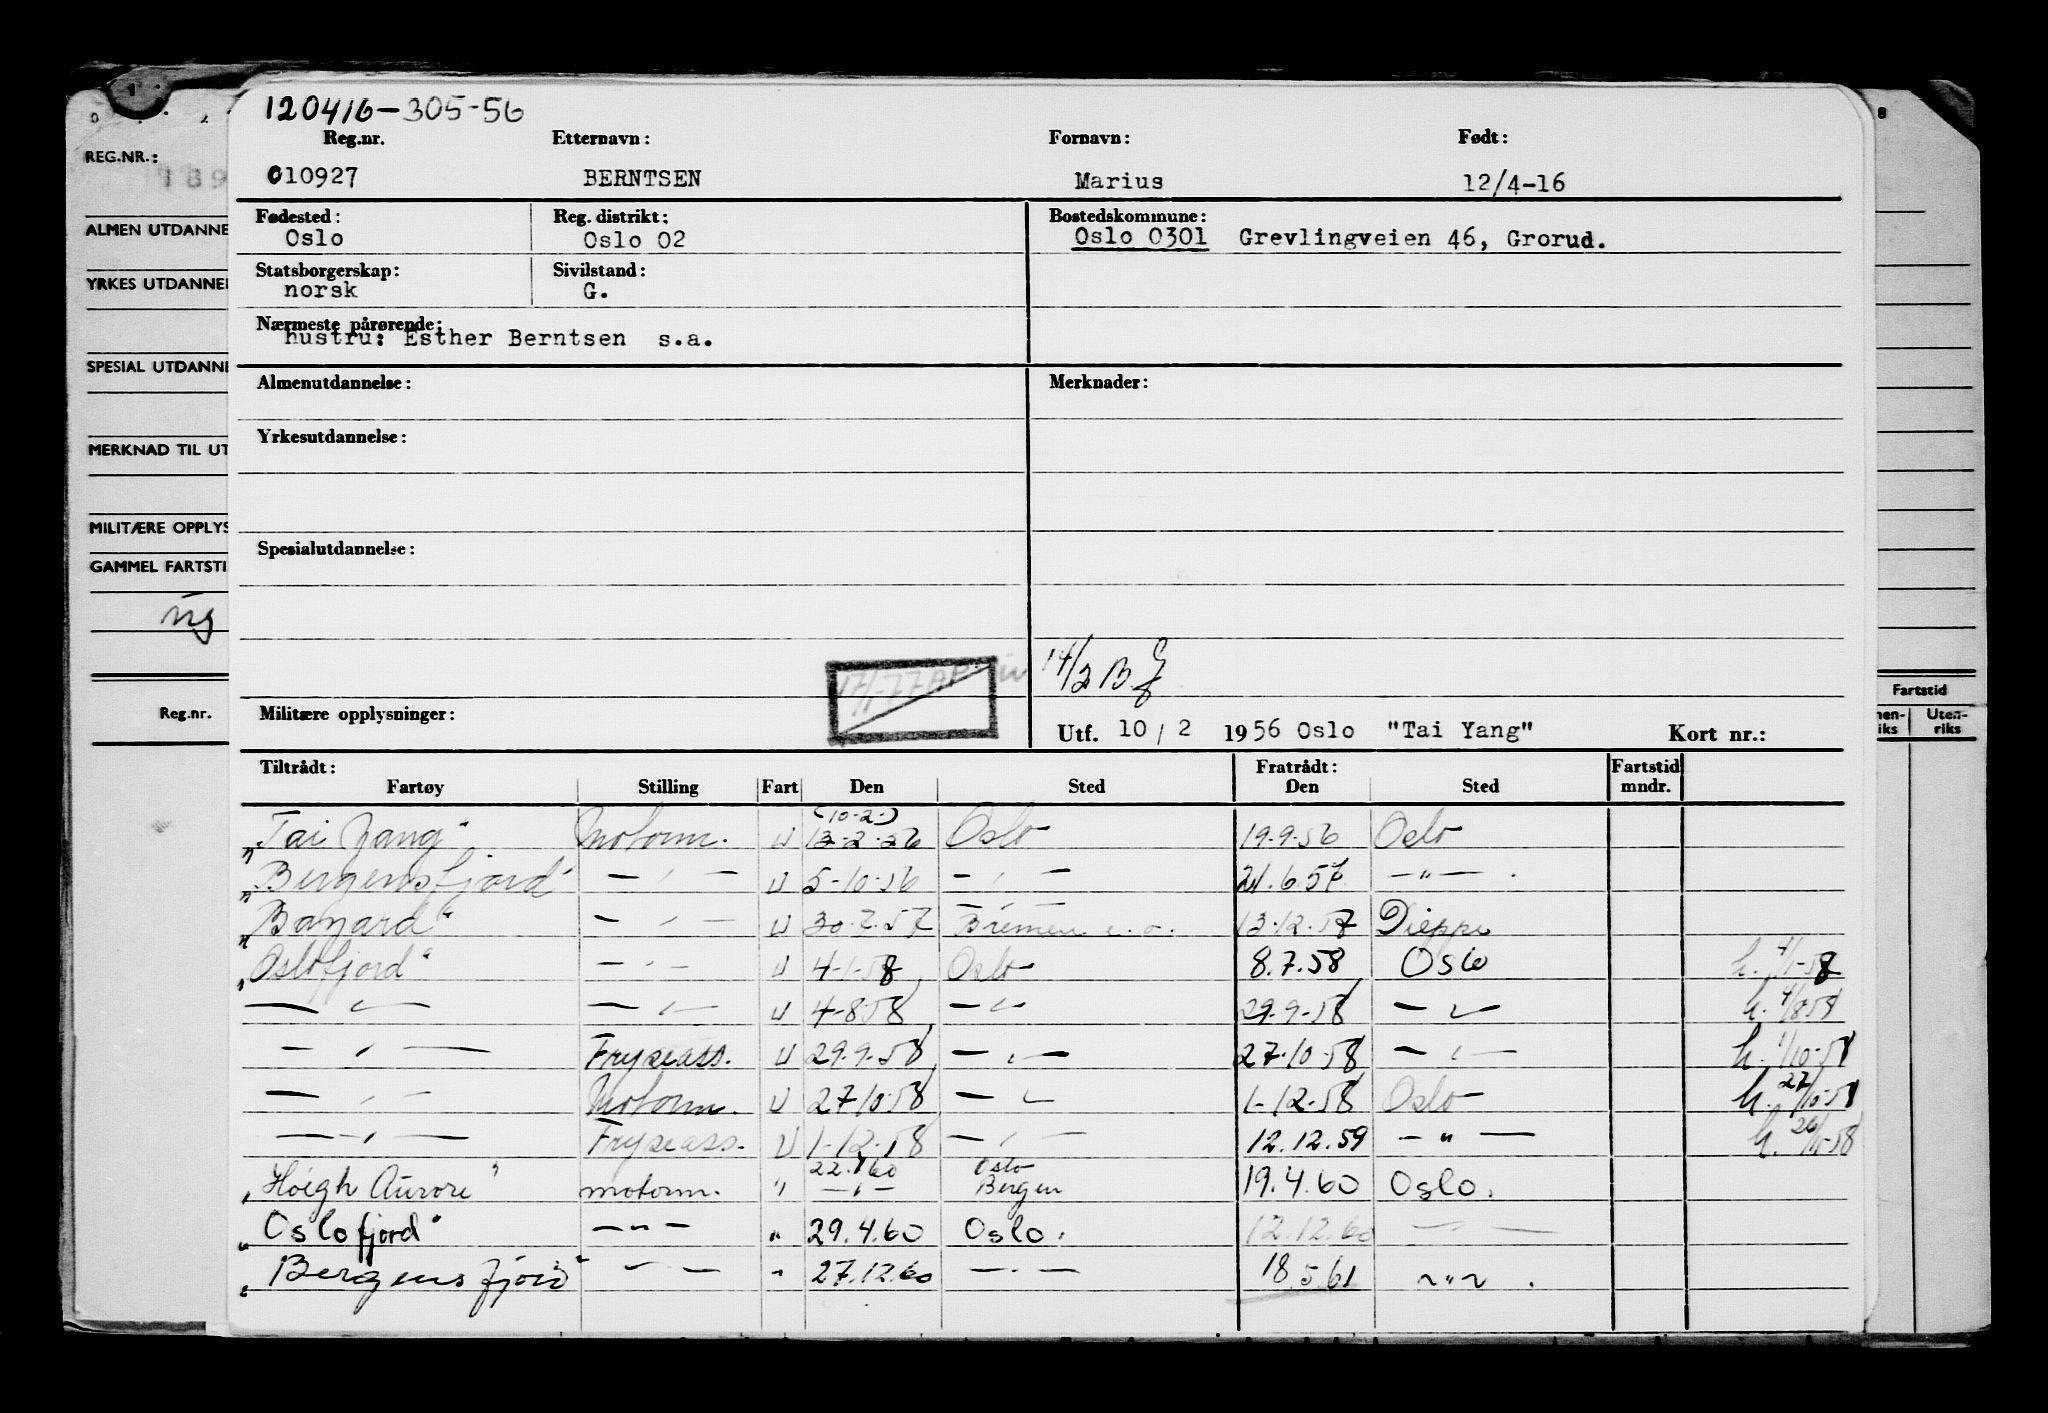 120416-305-56
Reg.nr. Etternavn: Fornavn: Født:
010927 BERNTSEN Marius 12/4-16
Fødested: Reg. distrikt: Bostedskommune:
Oslo Oslo 02 Oslo 0301 Grevlingveien 46, Grorud.
Statsborgerskap: Sivilstand:
norsk G.
Nærmeste pårørende:
hustru: Esther Berntsen s.a.
Almenutdannelse: Merknader:
Yrkesutdannelse:
Spesialutdannelse:
14/2 B
Militære opplysninger: Utf. 10/2 1956 Oslo "Tai Yang" Kort nr.:
Tiltrådt: Fratrådt: Fartstid
Fartøy Stilling Fart Den Sted Den Sted mndr.
(10-2-)
"Tai Yang" Motorm. U 13-2-56 Oslo 19-9-56 Oslo
"Bergensfjord" — " — U 5-10-56 — " — 21.6.57 — " — .
"Banard" — " — U 30-7-57 Bremen 13-12-57 Dieppe
"Oslofjord" — " — U 4-1-58 Oslo 8.7.58 Oslo h. 4/1-58
— " — — " — U 4-8-58 — " — 29-9-58 — " — h. 4/8-58
— " — Fryseass. U 29-9-58 — " — 27-10-58 — " — h. 1/10-58
— " — Motorm. U 27-10-58 — " — 1-12-58 Oslo h. 27/10-58
— " — Fryseass. U 1-12-58 — " — 12.12.59 — " — h.
22.1.60 Oslo
"Høigh Aurore" motorm. " — " — Bergen 19.4.60 Oslo.
"Oslofjord" — " — " 29.4.60 Oslo. 12.12.60 — " —
"Bergensfjord" — " — " 27.12.60 — " — 18.5.61 — " — .
REG.NR.:
189
ALMEN UTDANNE
YRKES UTDANNE
SPESIAL UTDANN
MERKNAD TIL UT
MILITÆRE OPPLYS
GAMMEL FARTSTI
ug
Reg.nr.
8
Fartstid
Uten-
riks